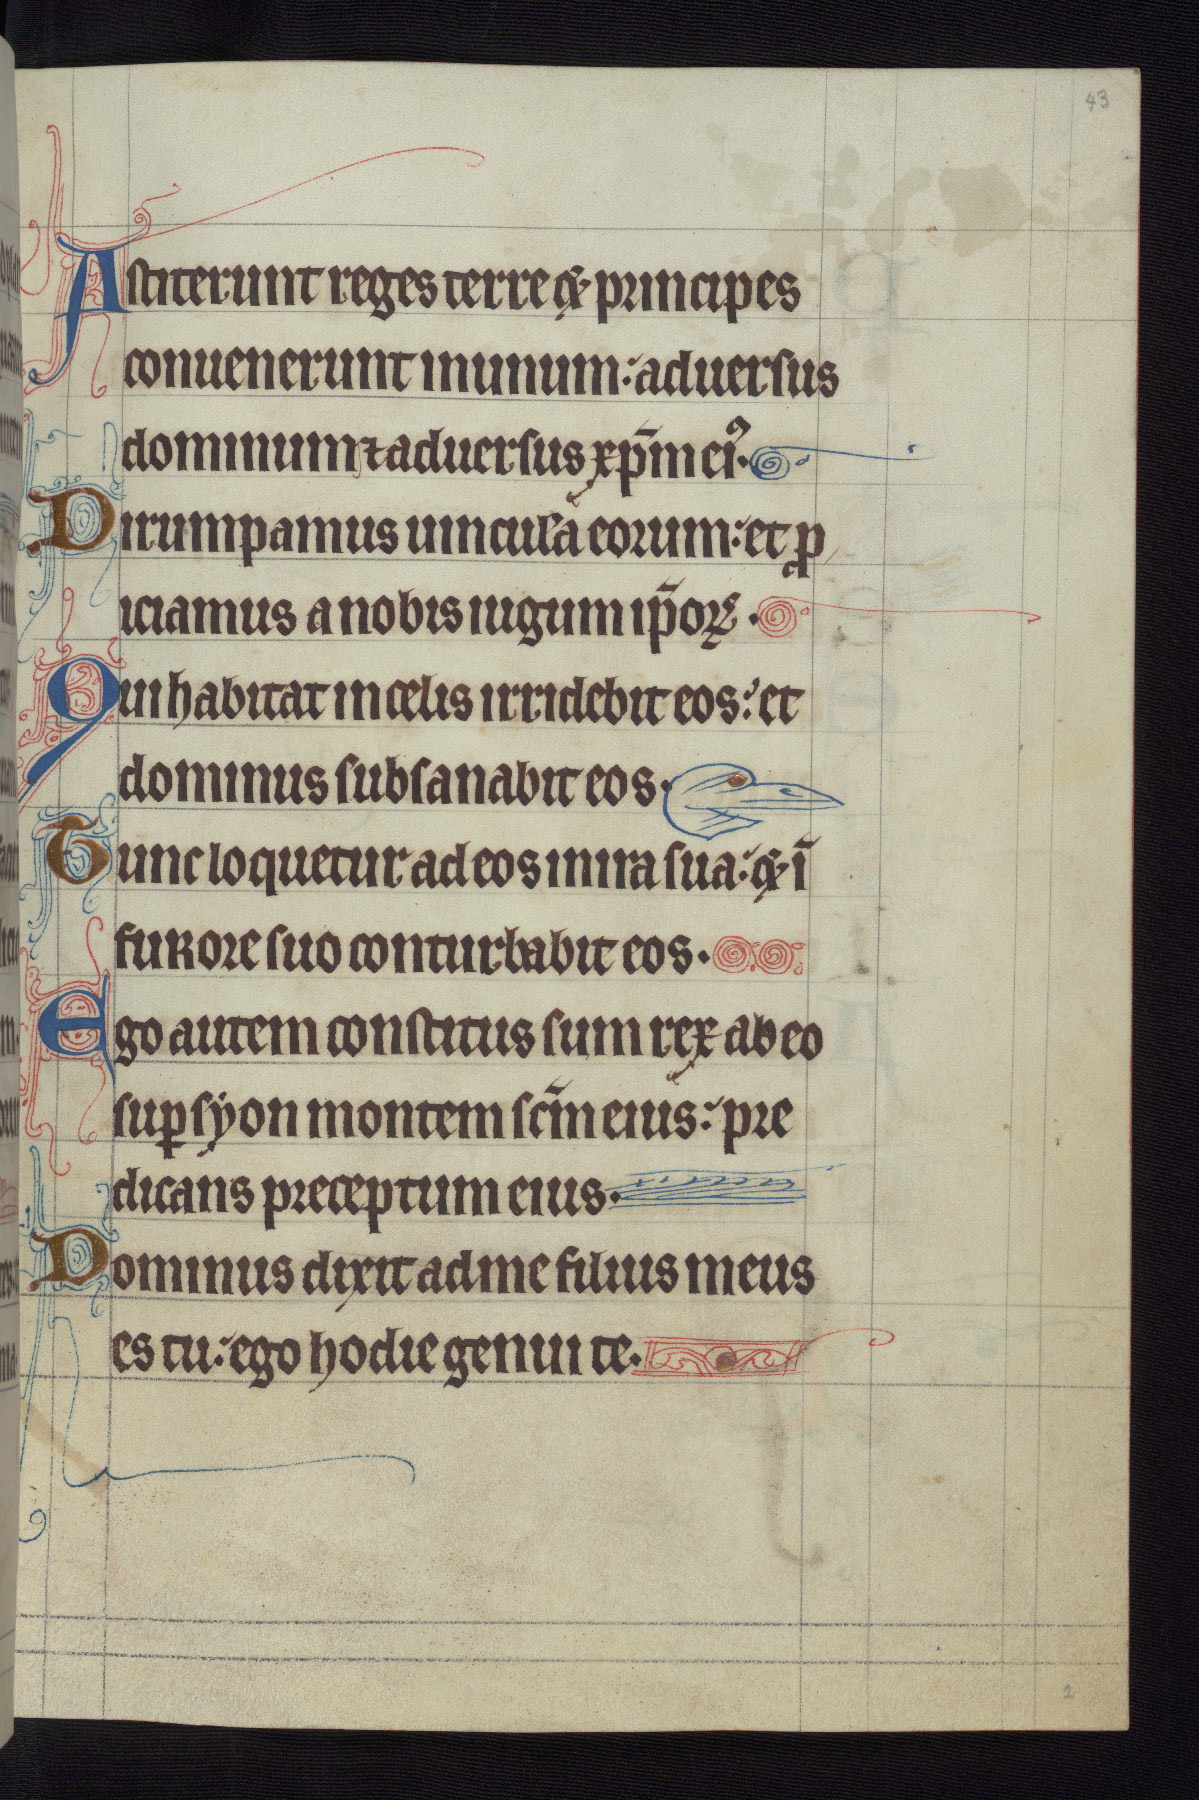 43
Astiterunt reges terre & principes
conuenerunt in unum: aduersus
dominum ⁊ aduersus xp̄m eiꝰ.
Dirumpamus uincula eorum: et ꝓ
iciamus a nobis iugum ip̄oꝝ.
Qui habitat in celis irridebit eos: et
dominus subsanabit eos.
Tunc loquetur ad eos in ira sua: & ī
fuRore suo conturbabit eos.
Ego autem constitus sum rex ab eo
suꝑ syon montem sc̄m eius: pre
dicans preceptum eius.
Dominus dixit ad me filius meus
es tu: ego hodie genui te.